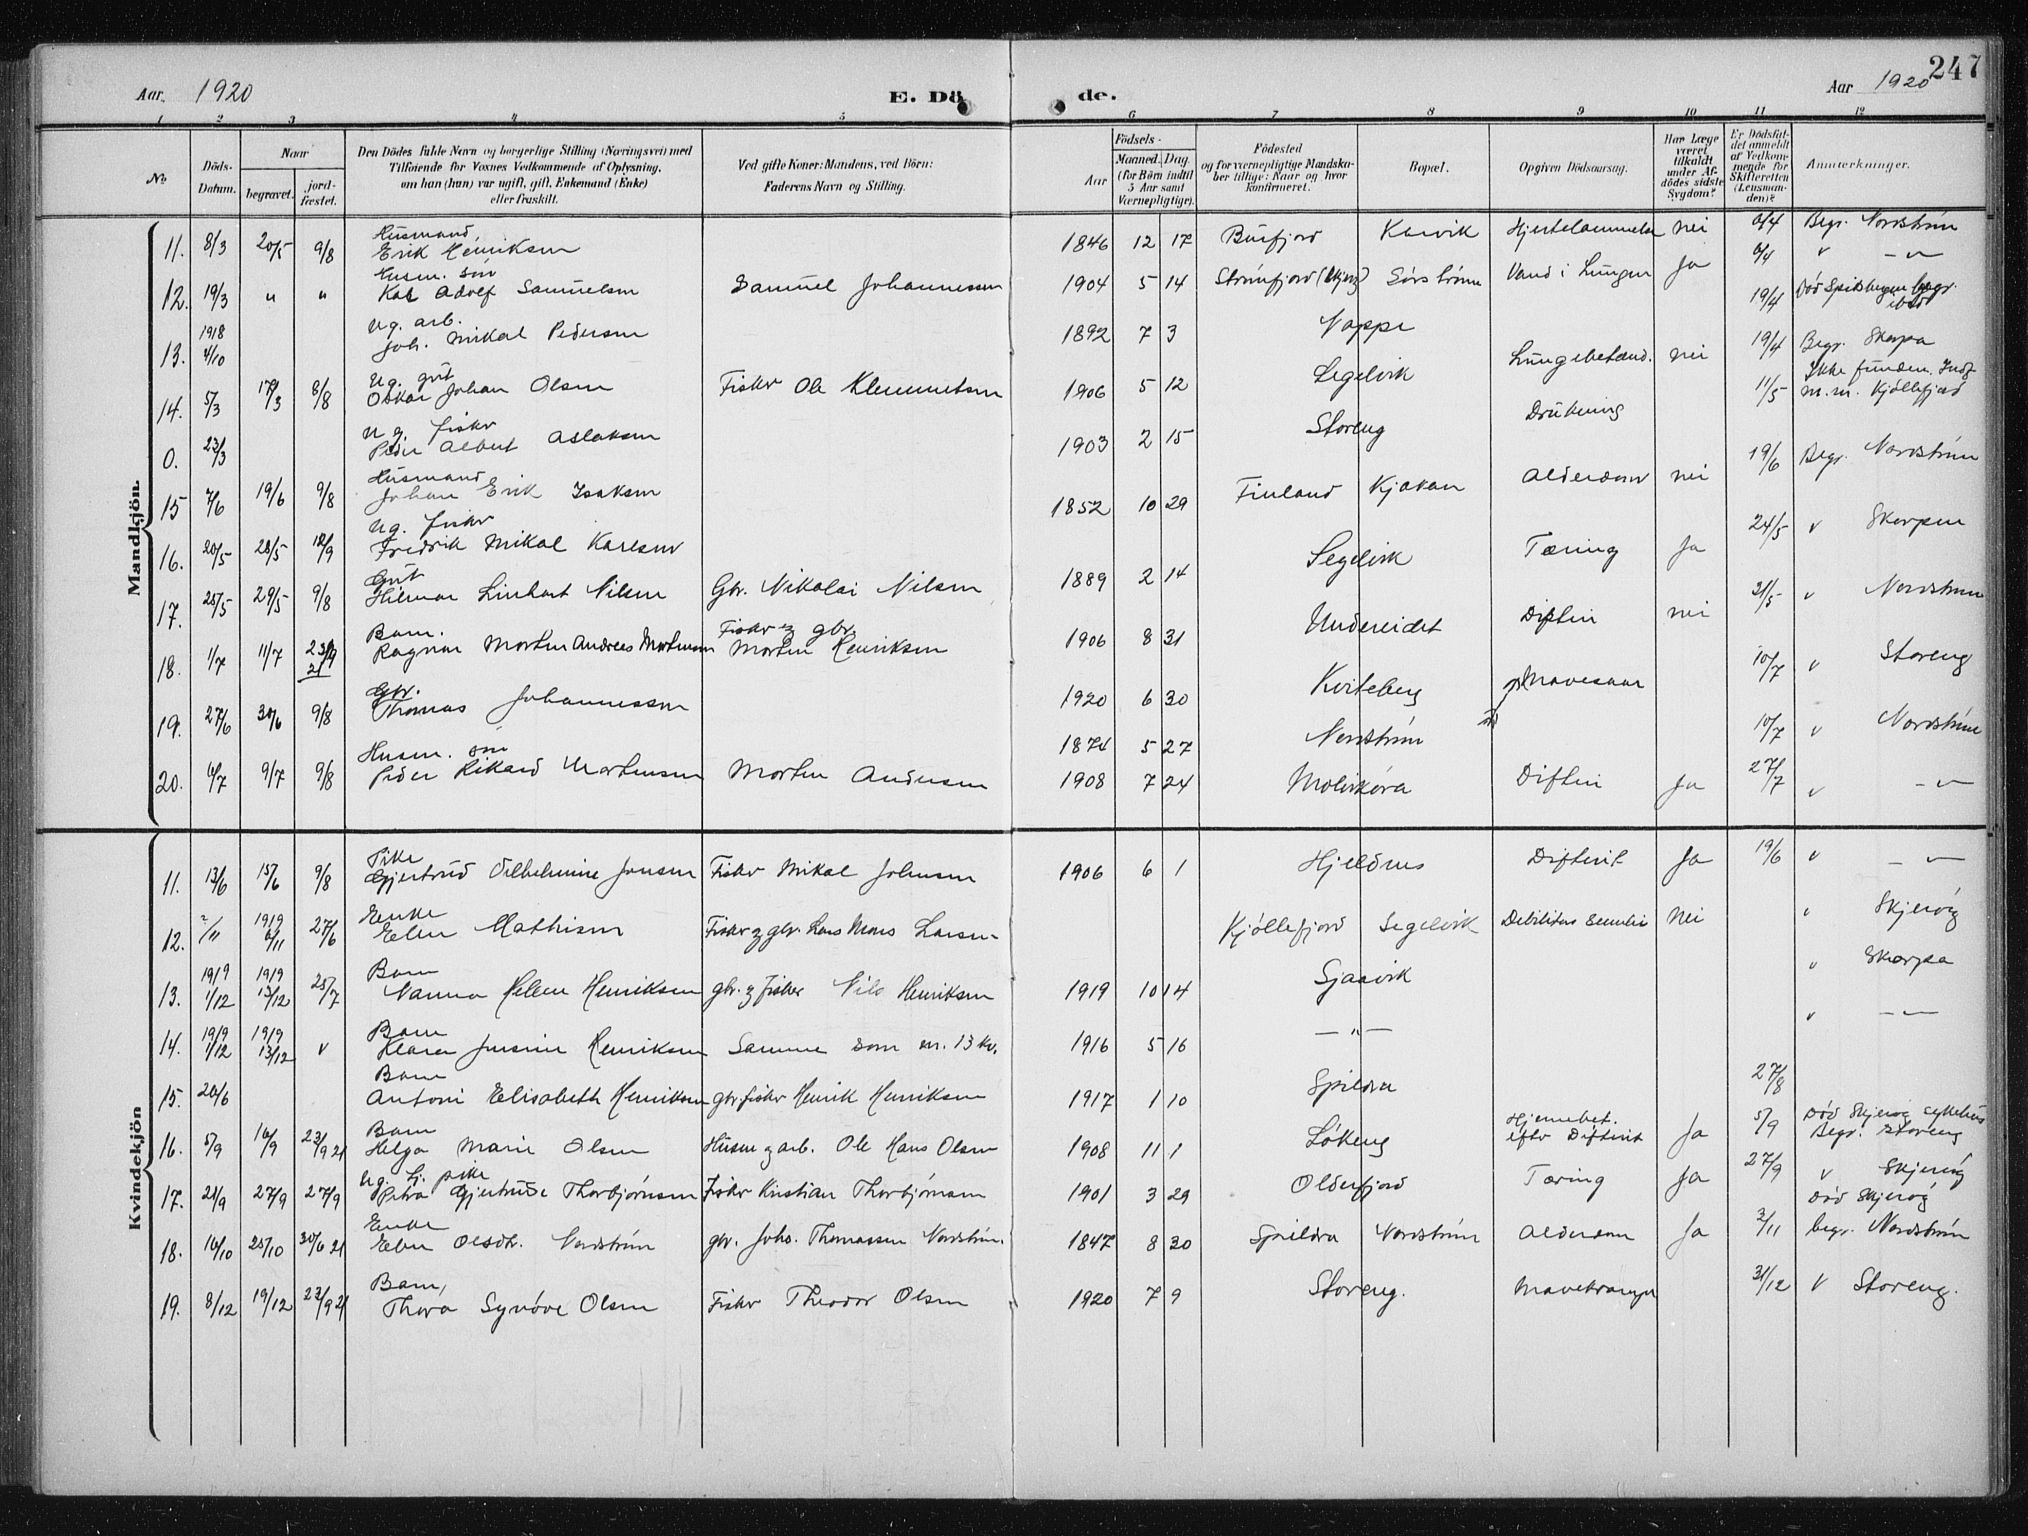 247
Aar. 1920
E. Dö de.
Aar 1920
1 2 3 4 5 6 7 8 9 10 11 12
No.
Döds-Datum.
Naar
begravet.
jord-fæstet.
Den Dödes fulde Navn og borgerlige Stilling (Næringsvei) med
Tilföiende for Voxnes Vedkommende af Oplysning,
om han (hun) var ugift, gift, Enkemand (Enke)
eller fraskilt.
Ved gifte Koner: Mandens, ved Börn:
Faderens Navn og Stilling.
Födsels-
Aar
Maaned. Dag.
(for Börn indtil
5 Aar samt
Værnepligtige).
Födested
og for værnepligtige Mandska-
ber tillige: Naar og hvor
konfirmeret.
Bopæl.
Opgiven Dödsaarsag.
Har Læge
været
tilkaldt
under Af-
dödes sidste
Sygdom?
Er Dödsfal-
det anmeldt
af Vedkom-
mende for
Skifteretten
(Lensman-
den)?
Anmærkninger.
Mandkjön.
11. 8/3 20/5 9/8 Husmand Erik Henriksen 1846 12 17 Burfjord Kavik Hjertelammelse nei 6/4 Begr. Nordstrøm
12. 19/3 " " Husm. søn Karl Adolf Samuelsen Samuel Johannessen 1904 5 14 Strømfjord (Skjerv) Sørstrøm Vand i Lungen Ja 6/4 " — " —
13. 1918 4/10 Ug. arb. Joh. Mikal Pedersen 1892 7 3 Nappe 19/4 Død Spitsbergen begr. ibid
14. 5/3 17/3 8/8 Ug. gut Oskar Johan Olsen Fisker Ole Klemmetsen 1906 5 12 Segelvik Lungebetænd. nei 19/4 Begr. Skorpa
0. 23/3 Ug. fisker Peder Albert Aslaksen 1903 2 15 Storeng Drukning 11/5 Ikke funden. Indf. m.m. Kjøllefjord
15 7/6 19/6 9/8 Husmand Johan Erik Isaksen 1852 10 29 Finland Kjækan Alderdom nei 19/6 Begr. Nordstrøm
16. 20/5 28/5 12/9 Ug. fisker Fredrik Mikal Karlsen 1889 2 14 Segelvik Tæring Ja 24/5 v Skorpen
17. 25/5 29/5 9/8 Gut Hilmar Linhart Nilsen Gbr. Nikolai Nilsen 1906 8 31 Undereidet Difteri nei 31/5 v Nordstrøm
18. 1/7 11/7 23/9 21 Barn. Ragnar Morten Andreas Mortensen Fisker og gbr Morten Henriksen 1920 6 30 Kviteberg 10/7 v Storeng
19. 27/6 30/6 9/8 Gbr. Thomas Johannessen 1874 5 27 Nordstrøm Mavesaar 10/7 v Nordstrøm
20. 4/7 9/7 9/8 Husm. søn Peder Rikard Mortensen Morten Andersen 1908 7 24 Molvikøra Difteri Ja 27/7 v — " —
Kvindekjön
11. 13/6 15/6 9/8 Pike Gjertrud Vilhelmine Jonsen Fisker Mikal Johnsen 1906 6 1 Hjeldnes Difterit Ja 19/6 v — " —
12. ?/11 1919 6/11 27/6 Enke Elen Mathisen Fisker og gbr. Lars Mons Larsen Kjøllefjord Segelvik Debilitas senilis Nei v Skjervøy
13. 1919 1/12 1919 13/12 25/7 Barn Nanna Helene Henriksen gbr. og fisker Nils Henriksen 1919 10 14 Sjaavik v Skorpa
14. 1919 1/12 1919 13/12 v Barn Klara Jensine Henriksen Samme som nr. 13 kv. 1916 5 16 — " — v — " —
15. 20/6 Barn Antoni Elisabeth Henriksen gbr. fisker Henrik Henriksen 1917 1 10 Spildra 27/8
16. 5/9 16/9 23/9 21 Barn Helga Marie Olsen Husm og arb. Ole Hans Olsen 1908 11 1 Løkeng Hjernebet. efter Difterit Ja 5/9 Død Skjervøy sykehus Begr. Storeng
17. 21/9 27/9 27/9 Ug. tj. pike Petra Gjertrude Thorbjørnsen Fisker Kristian Thorbjørnsen 1901 3 29 Olderfjord Tæring Ja 27/9 v Skjervøy
18. 16/10 25/10 30/6 21 Enke Elen Olsdtr. Nordstrøm gbr. Johs. Thomassen Nordstrøm. 1847 8 20 Spildra Nordstrøm Alderdom Ja 3/11 Død Skjervøy begr. Nordstrøm
19. 8/12 19/12 23/9 21 Barn, Thora Synøve Olsen Fisker Theodor Olsen 1920 7 9 Storeng. Mavekrampe 31/12 v Storeng.